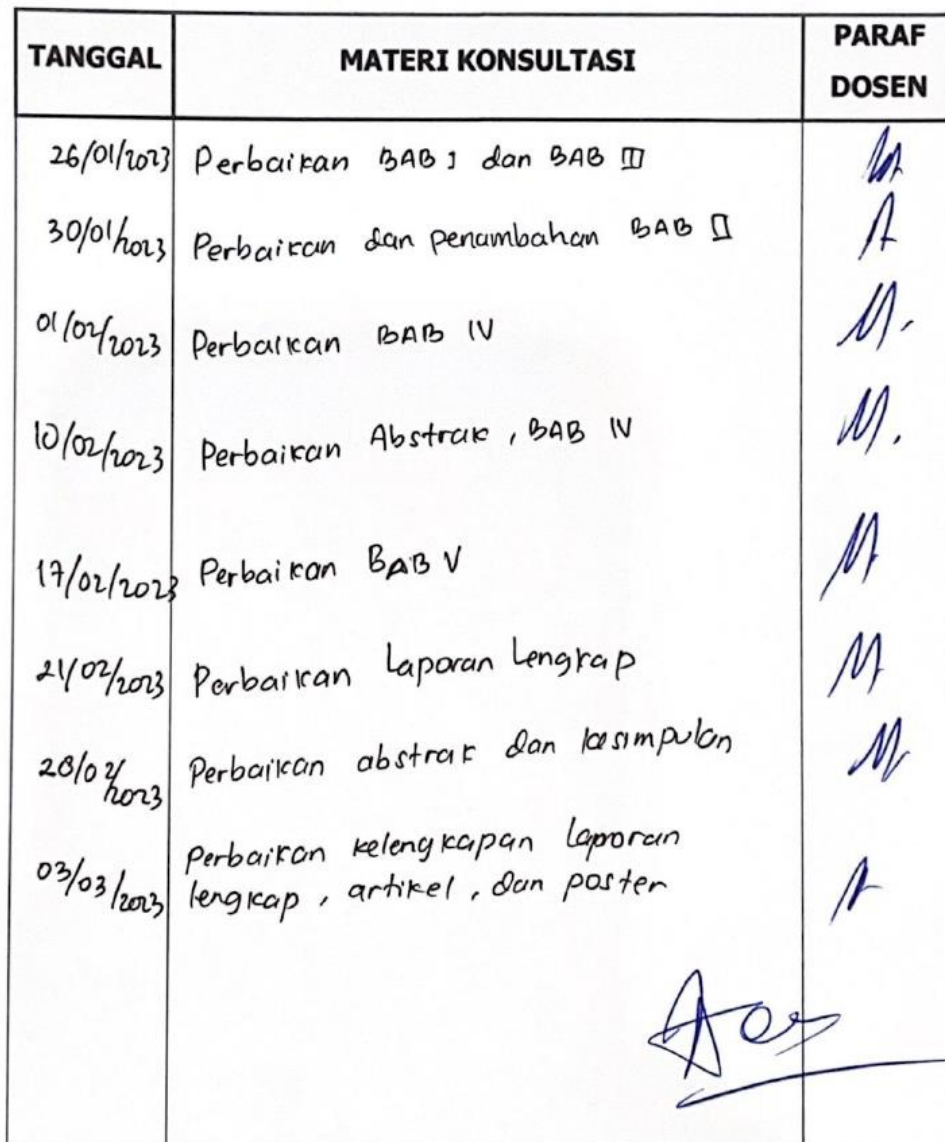 TANGGAL MATERI KONSULTASI PARAF DOSEN
26/01/2023 Perbaikan BAB I dan BAB III
30/01/2023 Perbaikan dan penambahan BAB II
01/02/2023 Perbaikan BAB IV
10/02/2023 Perbaikan Abstrak, BAB IV
17/02/2023 Perbaikan BAB V
21/02/2023 Perbaikan Laporan Lengkap
28/02/2023 Perbaikan abstrak dan kesimpulan
03/03/2023 Perbaikan kelengkapan Laporan
lengkap, artikel, dan poster